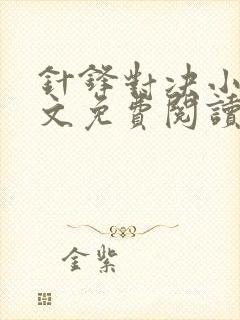 針鋒對決小
文免費閱讀
金柴